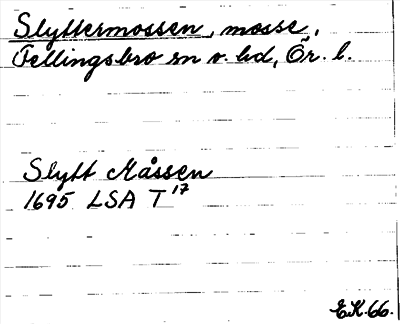 Slyttermossen, mosse,
Fellingsbro sn v. hd, Ör. l.
Slytt Måssen
1695 LSA T 17
E.K. 66.